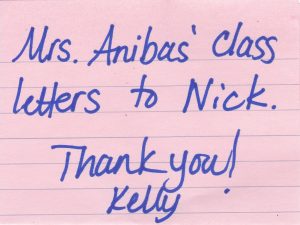 Mrs. Anibas' class
letters to Nick.
Thank you!
Kelly